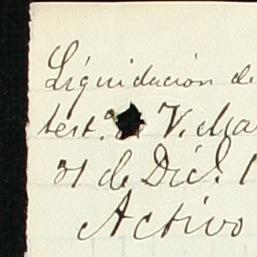 Liquidación de
test.ª de V. Ma
31 de Dic. 1
Activo